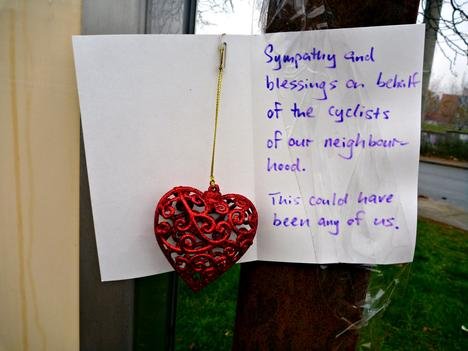 Sympathy and
blessings on behalf
of the cyclists
of our neighbour-
hood.
This could have
been any of us.